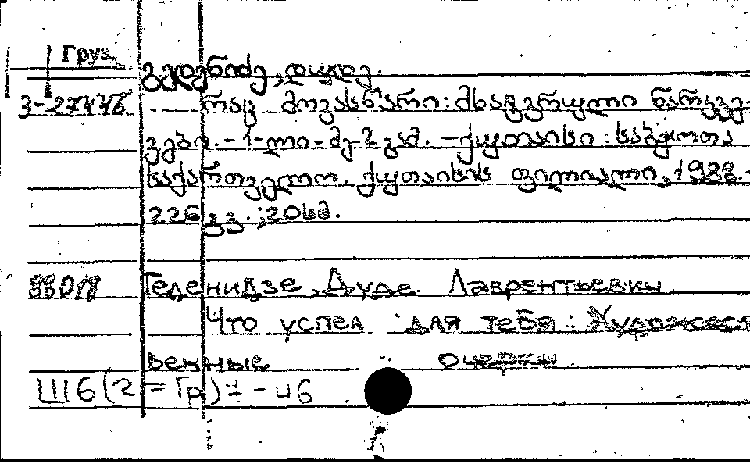 Груз.
გედენიძე, დუდე.
3-27446 რაც მოვასწარი: მხატვრული ნარკვე-
ვები. - 1-ლი-მე-2 გამ. - ქუთაისი: საბჭოთა
საქართველო, ქუთაისის ფილიალი, 1988.-
226 გვ.; 20სმ.
Геденидзе, Дуде Лаврентьевич
Что успел для тебя: Художест
венные очерки
Ш6(2=Гр)1-46